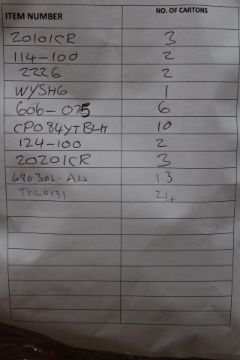 ITEM NUMBER NO. OF CARTONS
20101CR 3
114-100 2
2226 2
WYSHG 1
606-075 6
CP084YTBLH 10
124-100 2
20201CR 3
13
24